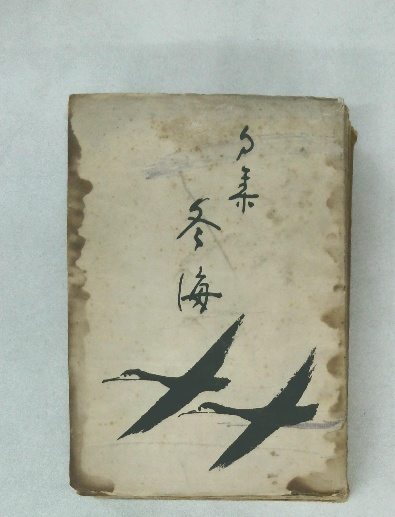 句集
冬海